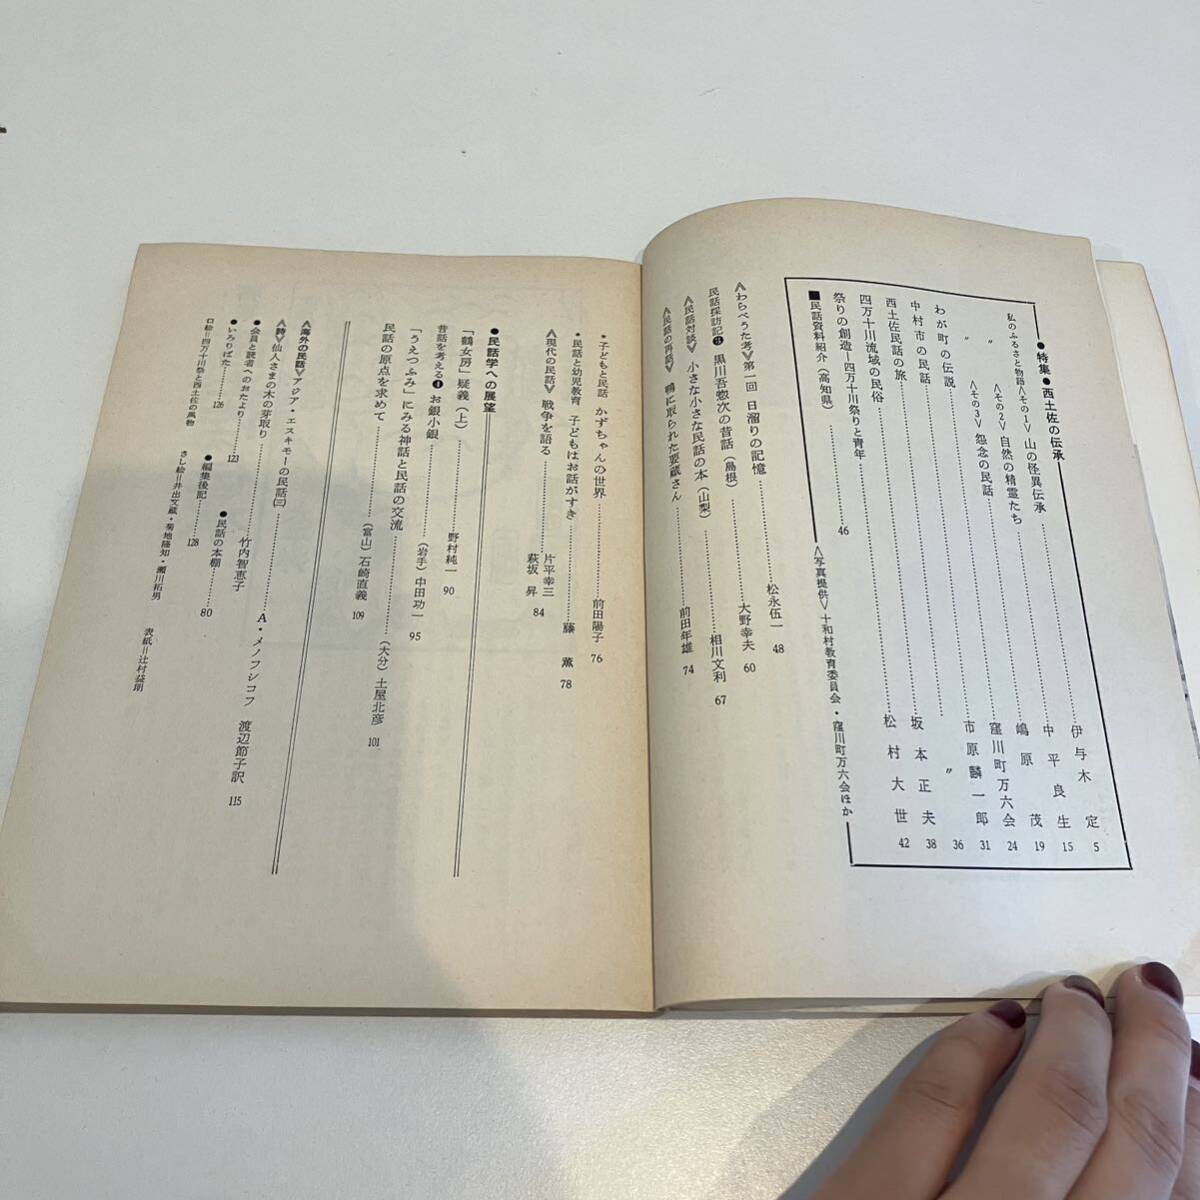 ●特集●西土佐の伝承
私のふるさと物語〈その1〉山の怪異伝承……伊与木 定 5
〃 〈その2〉自然の精霊たち……中平良生 15
〃 〈その3〉怨念の民話……嶋原 茂 19
わが町の伝説……窪川町万六会 24
中村市の民話……市原麟一郎 31
西土佐民話の旅……〃 36
四万十川流域の民俗……坂本正夫 38
祭りの創造―四万十川祭りと青年……松村大世 42
■民話資料紹介(高知県)……46
〈写真提供〉十和村教育委員会・窪川町万六会ほか
〈わらべうた考〉第一回 日溜りの記憶……松永伍一 48
民話採訪記⓭ 黒川吾惣次の昔話(島根)……大野幸夫 60
〈民話対談〉小さな小さな民話の本(山梨)……相川文利 67
〈民話の再話〉鴨に取られた要蔵さん……前田年雄 74
・子どもと民話 かずちゃんの世界……前田陽子 76
・民話と幼児教育 子どもはお話がすき……藤 薫 78
〈現代の民話〉戦争を語る……片平幸三
萩坂 昇 84
●民話学への展望
「鶴女房」疑義(上)……野村純一 90
昔話を考える❹お銀小銀……(岩手)中田功一 95
「うえつふみ」にみる神話と民話の交流……(大分)土屋北彦 101
民話の原点を求めて……(富山)石崎直義 109
〈海外の民話〉アジア・エスキモーの民話(三)……A・メノフシコフ 渡辺節子訳 115
〈詩〉仙人さまの木の芽取り……竹内智恵子
●会員と読者へのおたより……123
●民話の本棚……80
●いろりばた……126
●編集後記……128
口絵=四万十川祭と西土佐の風物
さし絵=井出文蔵・菊地隆知・瀬川拓男
表紙=辻村益朗